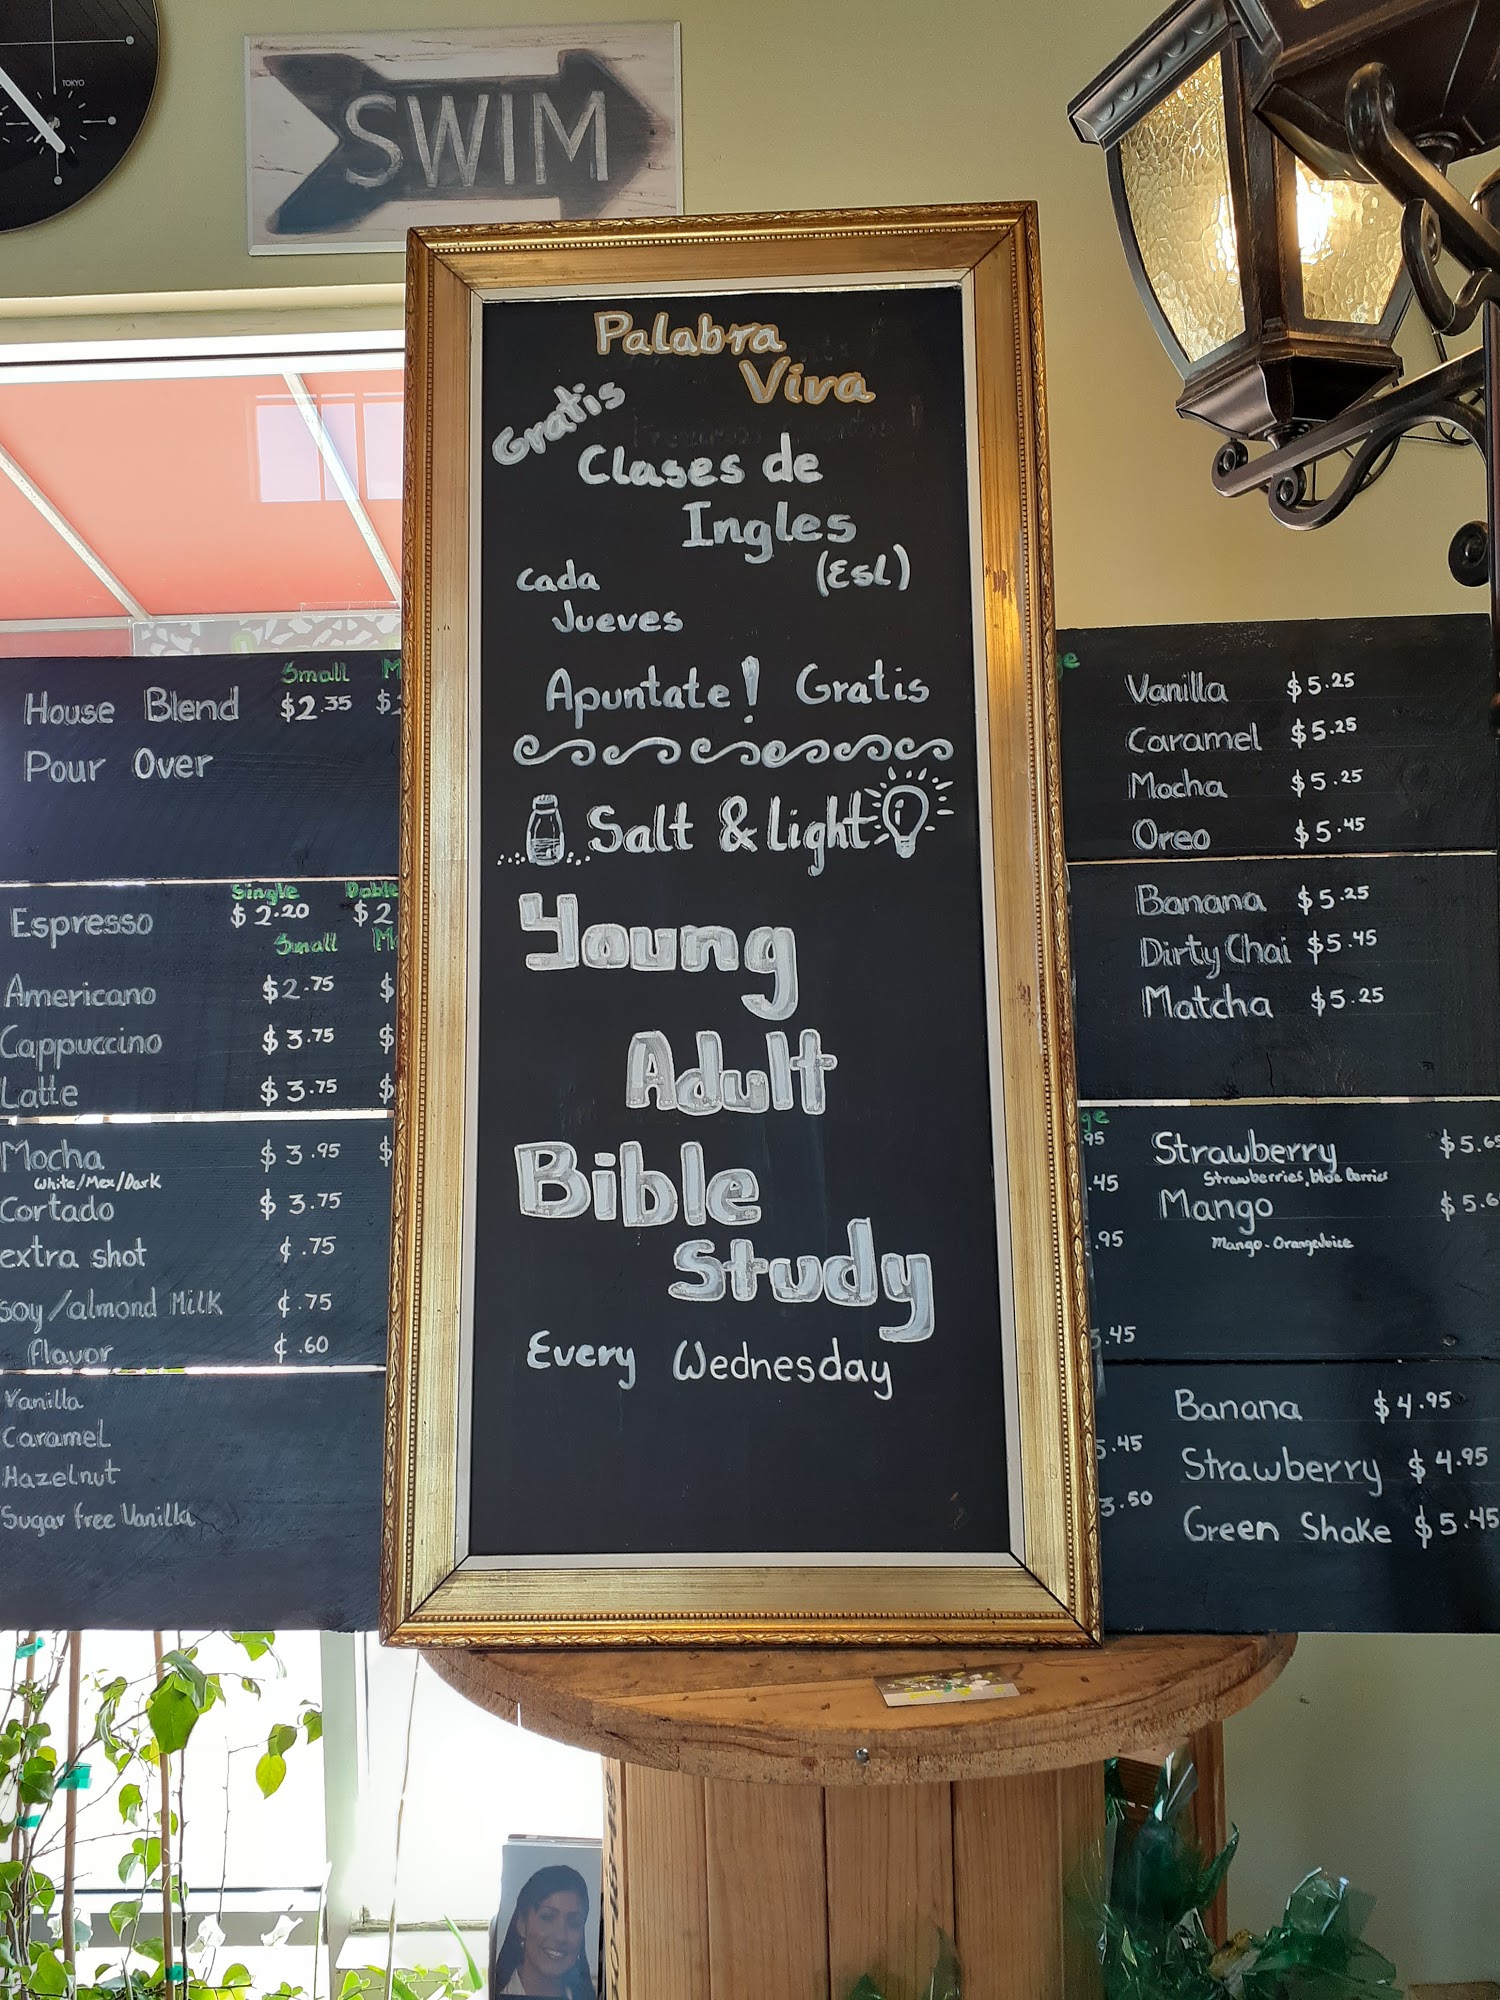 TOKYO
SWIM
Palabra
Viva
Gratis
Clases de
Ingles
(Esl)
cada
Jueves
Apuntate! Gratis
Salt & light
Young
Adult
Bible
Study
Every Wednesday
Small
House Blend $2.35 $2
Pour Over
Single Doble
Espresso $2.20 $2
Small
Americano $2.75 $
Cappuccino $3.75 $
Latte $3.75 $
Mocha $3.95 $
White/Mex/Dark
Cortado $3.75
extra shot ¢.75
soy/almond Milk ¢.75
flavor ¢.60
Vanilla
Caramel
Hazelnut
Sugar free Vanilla
ge
Vanilla $5.25
Caramel $5.25
Mocha $5.25
Oreo $5.45
Banana $5.25
Dirty Chai $5.45
Matcha $5.25
ge
.95
.45
.95
5.45
5.45
3.50
Strawberry $5.65
Strawberries, blue berries
Mango $5.6
Mango-Orangejuice
Banana $4.95
Strawberry $4.95
Green Shake $5.45